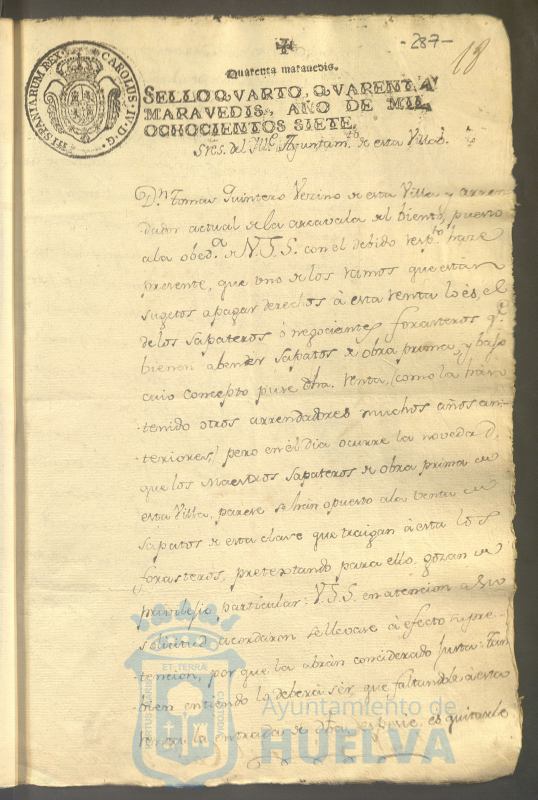 -287-
18
CAROLUS IV D G HISPANIARUM REX
Quarenta maravedis.
SELLO QVARTO, QVARENTA
MARAVEDIS, AÑO DE MIL
OCHOCIENTOS SIETE.
Sres. del Ille. Ayuntamto. de esta Villa
Dn. Tomas Quintero Vezino de esta Villa y arren-
dador actual de la arcavala del biento, puesto
a la obeda. de V.S.S. con el debido respto. haze
presente, que uno de los ramos que estan
sugetos a pagar derechos à esta renta lo és, el
de los sapateros ó negociantes forasteros qe.
bienen abender sapatos de obra prima, y bajo
cuio concepto puse dha. renta, (como la han
tenido otros arrendadores muchos años an-
teriores,) pero en èl dia ocurre la novedad
que los Maestros sapateros de obra prima de
esta Villa, parece se hàn opuesto a la venta de
sapatos de esta clase que traigan à esta los
forasteros, pretextando para ello gozan de
privilejio, particular: V.S.S. en atencion a su
solicitud acordaron se llevase à efecto su pre-
tencion, por que la abràn conciderado justa. Tam
bien entiendo lo deberà sèr que faltandole à esta
renta la entrada de dha. especie, es quitarle
ET TERRÆ
PORTUS MARIS
CUSTODIA
Ayuntamiento de
HUELVA